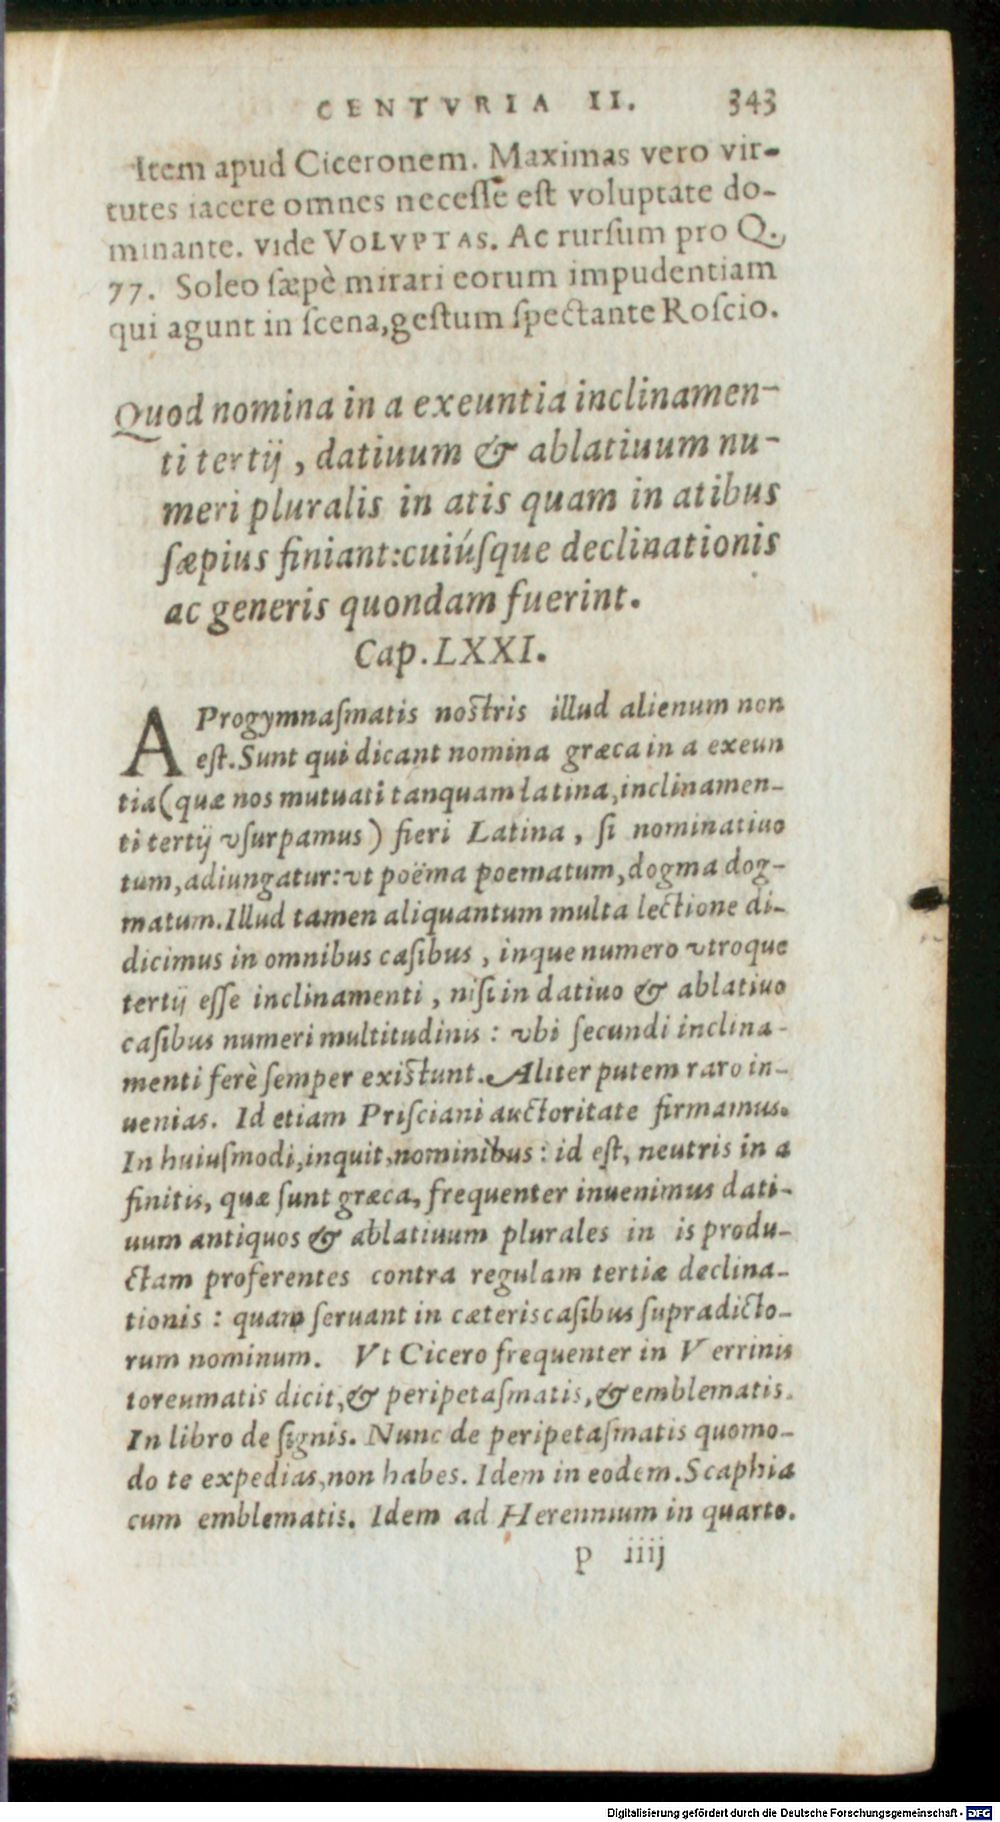 CENTVRIA II. 343
Item apud Ciceronem. Maximas vero vir-
tutes iacere omnes necesse est voluptate do-
minante. vide VOLVPTAS. Ac rursum pro Q.
77. Soleo sæpè mirari eorum impudentiam
qui agunt in scena, gestum spectante Roscio.
Quod nomina in a exeuntia inclinamen-
ti tertij, datiuum & ablatiuum nu-
meri pluralis in atis quam in atibus
sæpius finiant: cuiúsque declinationis
ac generis quondam fuerint.
Cap. LXXI.
A Progymnasmatis nostris illud alienum non
est. Sunt qui dicant nomina græca in a exeun
tia (quæ nos mutuati tanquam latina, inclinamen-
ti tertij vsurpamus) fieri Latina, si nominatiuo
tum, adiungatur: vt poëma poematum, dogma dog-
matum. Illud tamen aliquantum multa lectione di-
dicimus in omnibus casibus, inque numero vtroque
tertij esse inclinamenti, nisi in datiuo & ablatiuo
casibus numeri multitudinis: vbi secundi inclina-
menti ferè semper existunt. Aliter putem raro in-
uenias. Id etiam Prisciani auctoritate firmamus.
In huiusmodi, inquit, nominibus: id est, neutris in a
finitis, quæ sunt græca, frequenter inuenimus dati-
uum antiquos & ablatiuum plurales in is produ-
ctam proferentes contra regulam tertiæ declina-
tionis: quam seruant in cæteris casibus supradicto-
rum nominum. Vt Cicero frequenter in Verrinis
toreumatis dicit, & peripetasmatis, & emblematis.
In libro de signis. Nunc de peripetasmatis quomo-
do te expedias, non habes. Idem in eodem. Scaphia
cum emblematis. Idem ad Herennium in quarto.
p iiij
Digitalisierung gefördert durch die Deutsche Forschungsgemeinschaft - DFG